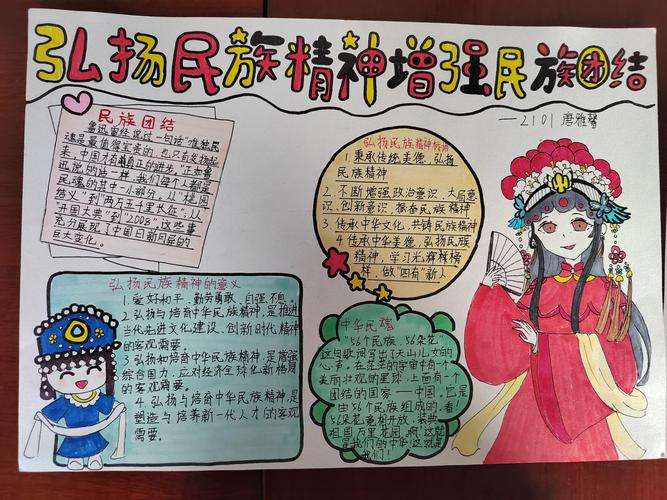 弘扬民族精神增强民族团结
—2101 唐雅馨
民族团结
鲁迅曾经说过一句话"唯独民
魂是最值得宝贵的,也只有发扬起
来,中国才有真正的进步,"正如鲁
迅说的话一样,我们每个人都是
民魂的其中一小部分,从"桃园
结义"到"两万五千里长征",从
"开国大典"到"2008",这些事
充分展现了中国日新月异的
巨大变化。
弘扬民族精神
1.秉承传统美德,弘扬
民族精神
2.不断增强政治意识、大局意
识、创新意识,振奋民族精神
3.传承中华文化,共铸民族精神
4.传承中华美德,弘扬民族
精神,学习光辉榜
样,做"四有"新人
弘扬民族精神的意义
1.爱好和平、勤劳勇敢、自强不息。
2.弘扬与培育中华民族精神,是推进
当代先进文化建设,创新时代精神
的客观需要。
3.弘扬和培育中华民族精神,是增强
综合国力,应对经济全球化新格局
的客观需要。
4.弘扬与培育中华民族精神,是
塑造与培养新一代人才的客观
需要。
中华民魂
"56个民族,56朵花"
这句歌词写出了天山儿女的
心声。在茫茫的宇宙中有一个
美丽壮观的星球,上面有一个
团结的国家——中国,它是
由56个民族组成的,看!
56朵花竞相开放,装典
祖国万里花园,啊!这就
是我们的中华这就是
我们!